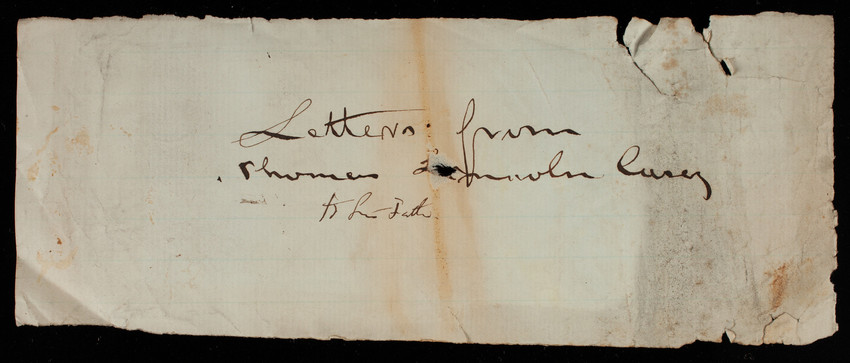 Letters from
Thomas Lincoln Casey
to his Father